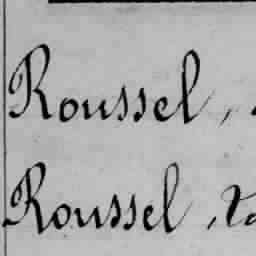 Roussel,
Roussel,